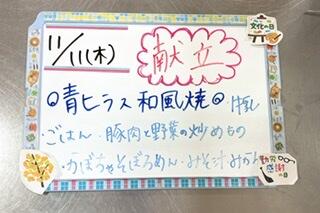 11/11(木) 献立
文化の日
◎青ヒラス和風焼◎・牛乳
・ごはん・豚肉と野菜の炒めもの
・かぼちゃそぼろあん・みそ汁・みかん
勤労感謝の日